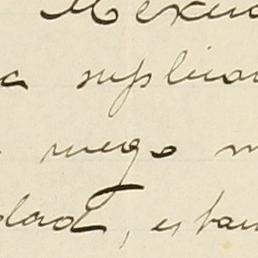 Mexic
a suplica
ruego m
dad, estan